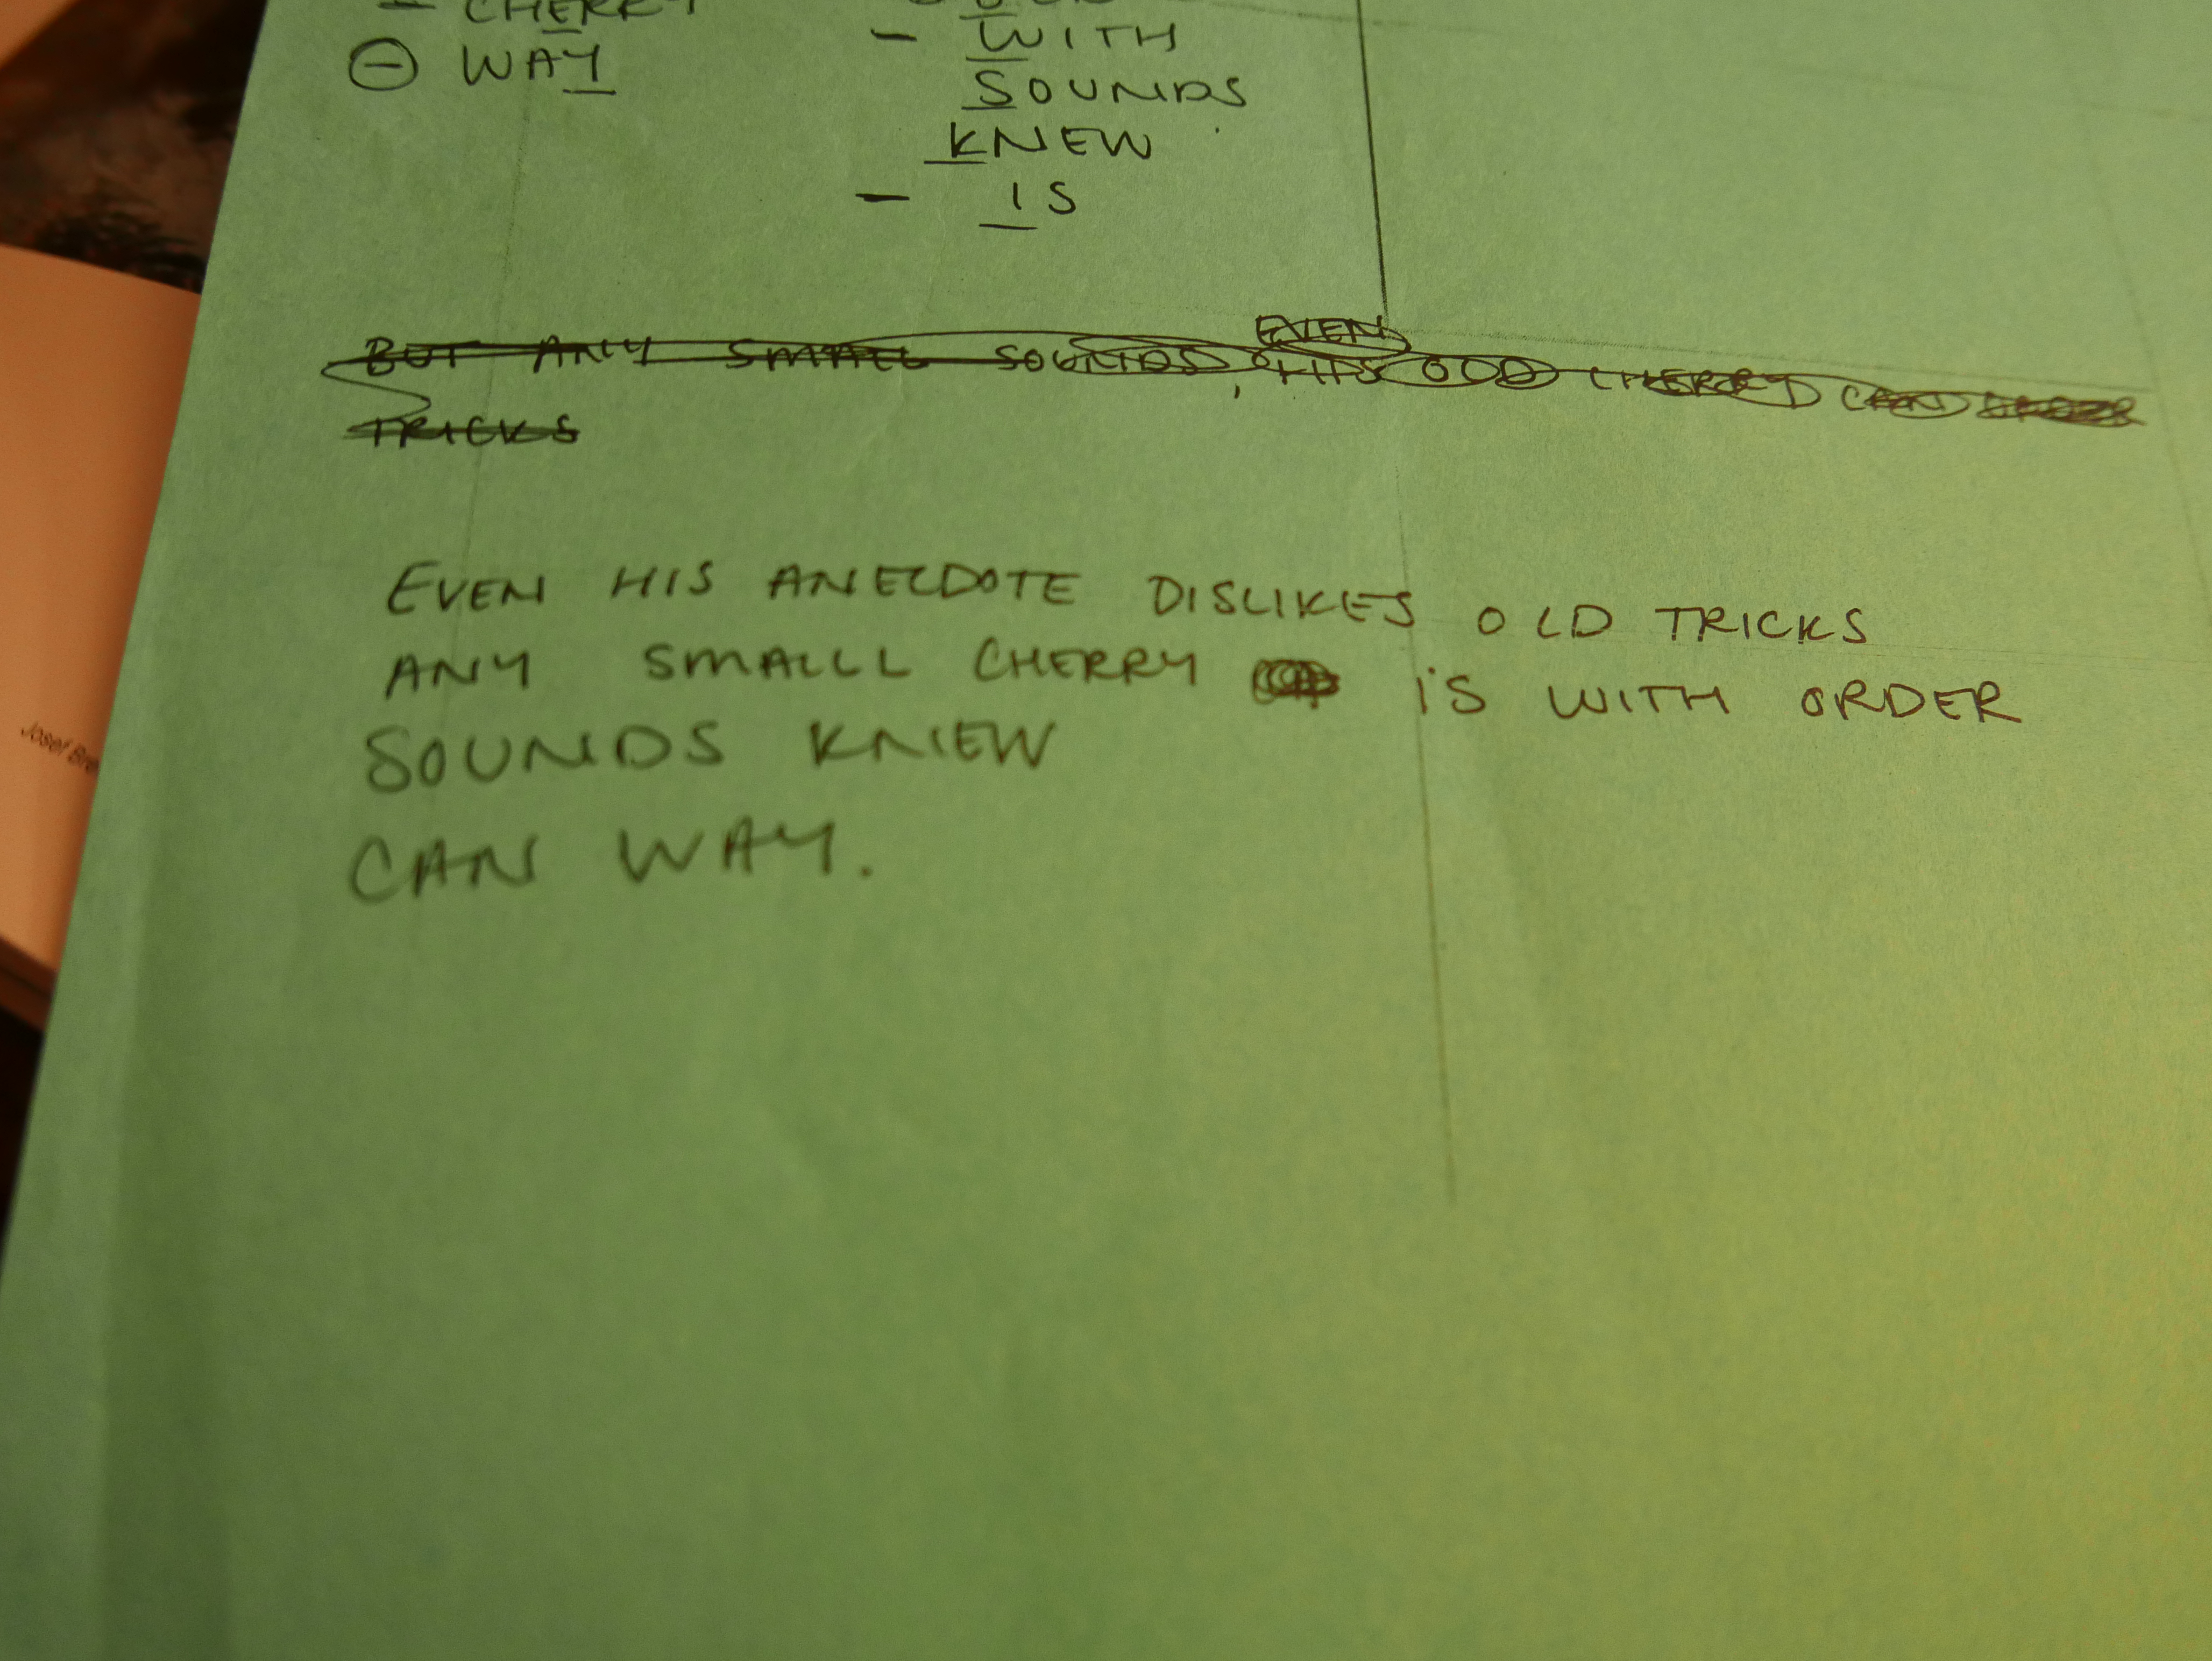 - CHERRY
⊖ WAY
- WITH
SOUNDS
KNEW
- IS
EVEN
BUT ANY SMALL SOUNDS, HIS OLD CHERRY CAN
TRICKS
EVEN HIS ANECDOTE DISLIKES OLD TRICKS
ANY SMALLL CHERRY IS WITH ORDER
SOUNDS KNEW
CAN WAY.
Josef Bre